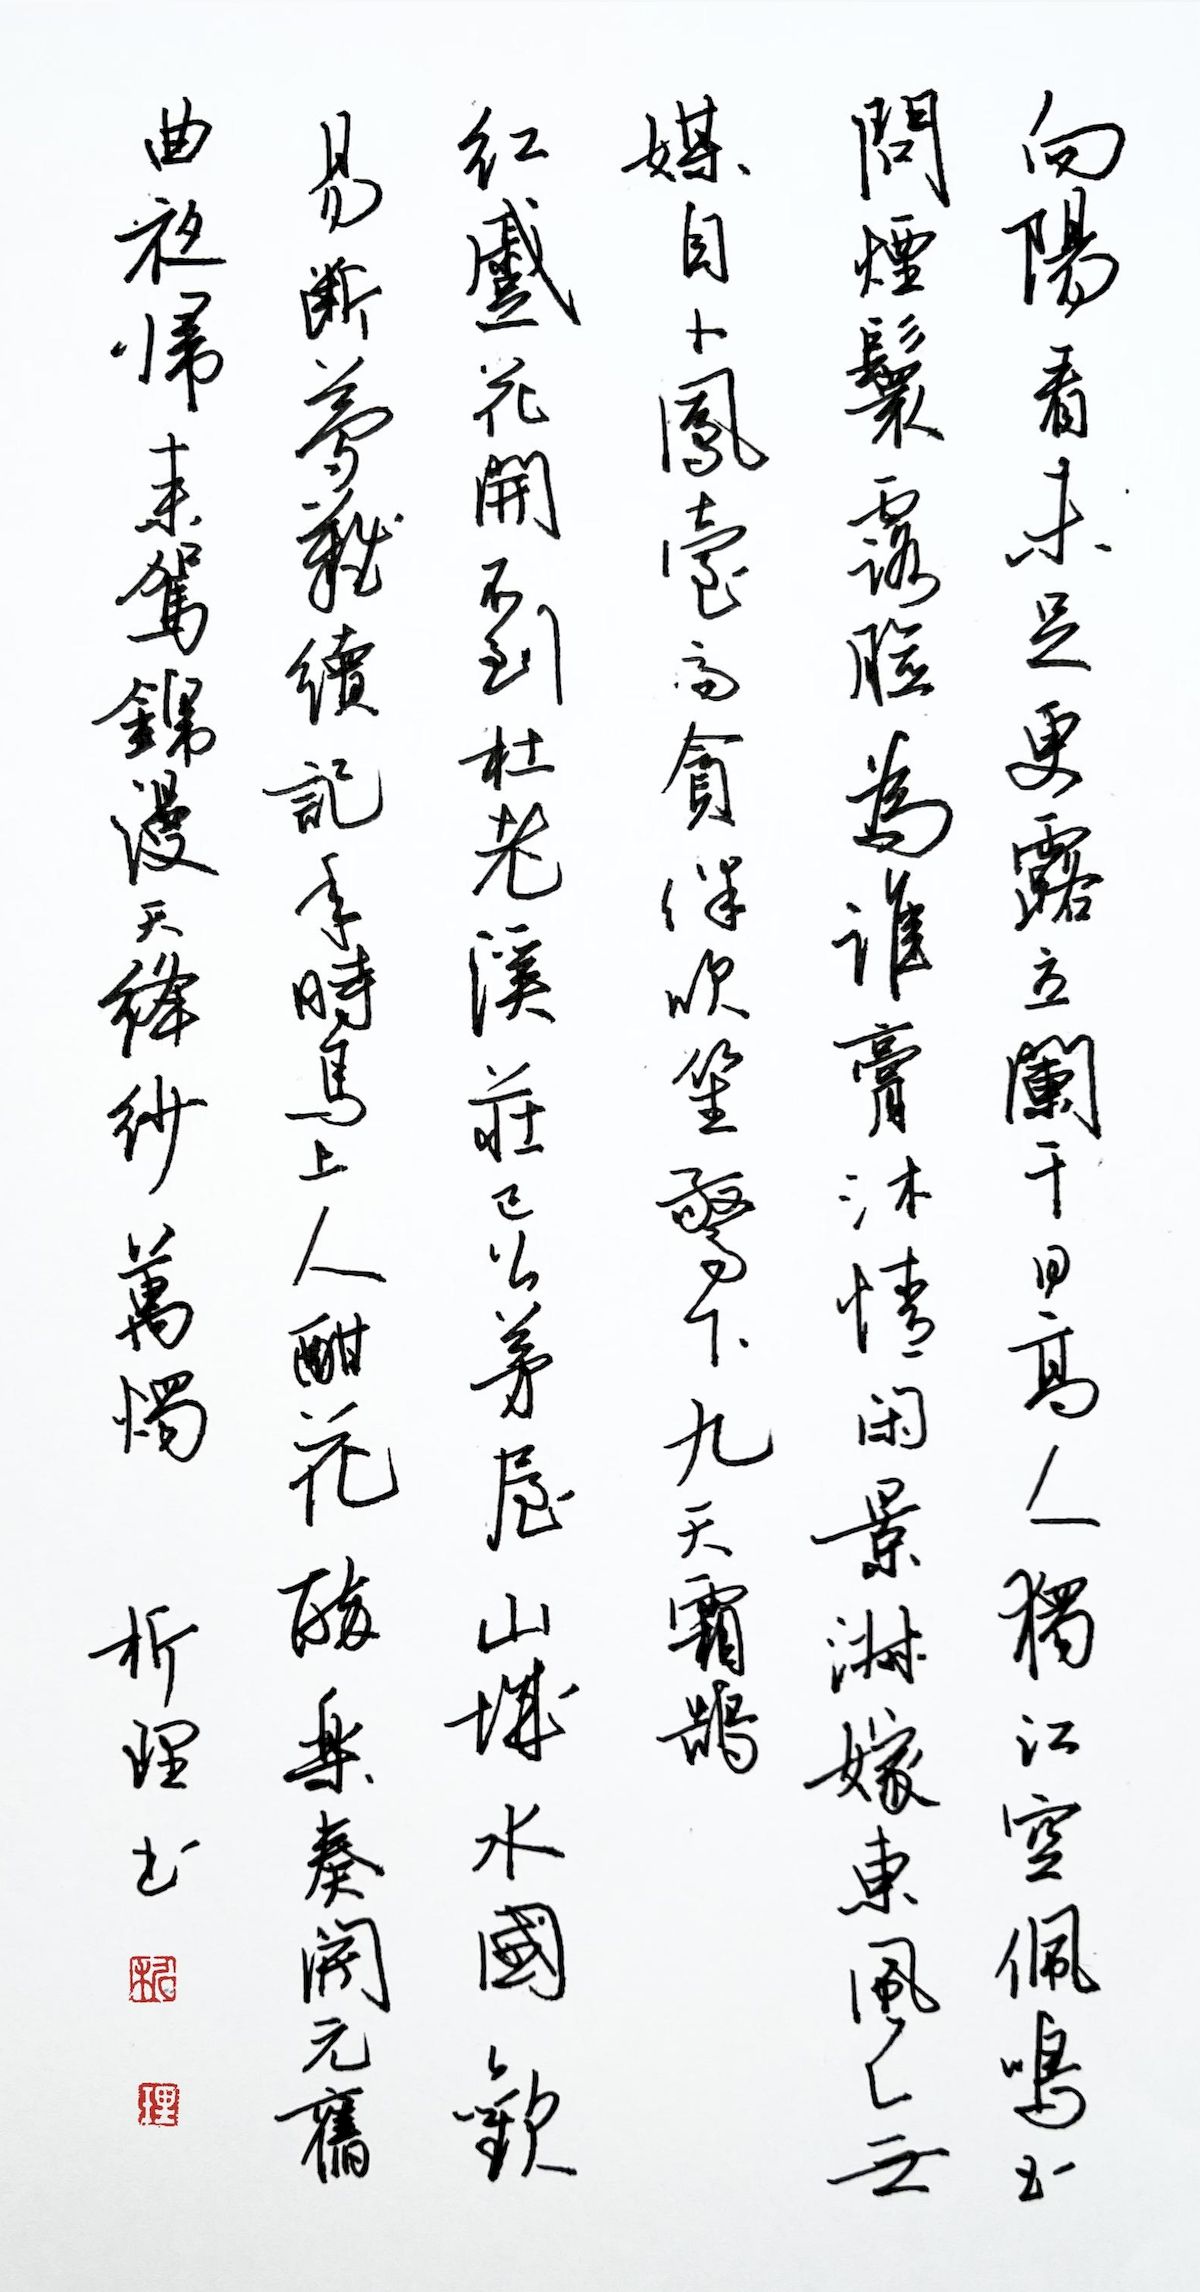 向陽看未足更露立闌干日高人獨江空佩鳴玉
問煙鬟霧臉為誰膏沐情閑景淑嫁東風已無
媒自卜鳳臺高貪伴吹笙驚下九天霜鵠
紅蹙花開不到杜老溪莊已公茅屋山城水國歡
易斷夢難續記年時馬上人酣花醉樂奏開元舊
曲夜歸來駕錦漫天絳紗萬燭 析理书
析
理